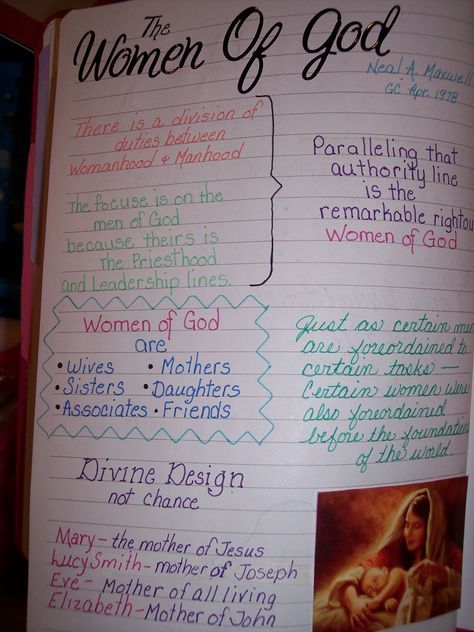 The
Women Of God
Neal A. Maxwell
GC Apr. 1978
There is a division of
duties between
Womanhood & Manhood
The focuse is on the
men of God
because theirs is
The Priesthood
and Leadership lines.
Paralleling that
authority line
is the
remarkable rightou
Women of God
Women of God
are
• Wives • Mothers
• Sisters • Daughters
• Associates • Friends
Just as certain me
are foreordained to
certain tasks —
Certain women were
also foreordained
before the foundation
of the world.
Divine Design
not chance
Mary - the mother of Jesus
Lucy Smith - mother of Joseph
Eve - Mother of all living
Elizabeth - Mother of John